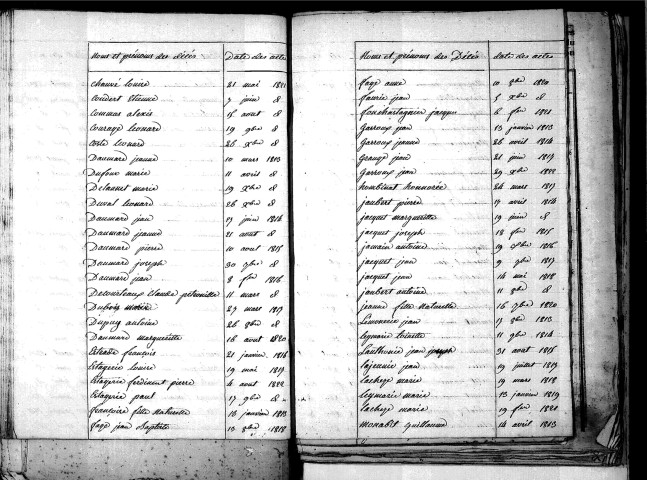 Noms et prénoms des décès Date des actes
chauvé louise 21 mai 1821
Coudert Etienne 7 juin d
Commas alexis 15 aout d
Courage leonard 19 9bre d
Coste leonard 26 Xbre d
Daumard jeanne 10 mars 1813
Dufour marie 11 avril d
Delasnet marie 19 Xbre d
Duval leonard 26 Xbre d
Daumard jean 17 juin 1814
Daumard jeanne 21 aout d
Daumard pierre 10 aout 1815
Daumard joseph 30 7bre d
Daumard jean 8 fer 1816
Descourteaux Claude petronille 11 mars d
Dubois marie 27 mars 1817
Dupuy antoine 26 8bre d
Daumard marguerite 16 aout 1820
françois 21 janvier 1816
louise 19 mai 1817
ferdinent pierre 4 aout 1822
paul 17 9bre d
françoise fille Naturelle 16 janvier 1813
fage jean Baptiste 13 8bre 1818
Noms et prénoms des Décès date des actes
fage anne 10 8bre 1820
faurie jean 5 Xbre d
fonchartagnier jacques 6 fer 1821
Garroux jean 13 janvier 1813
Garroux jeanne 26 avril 1814
Grange jean 21 juin 1817
Garroux jean 29 Xbre 1822
honnorée 24 mars 1817
jaubert pierre 17 avril 1814
jacquet marguerite 19 juin d
jacquet joseph 18 fer 1815
jamain antoine 19 Xbre 1816
jacquet jean 9 9bre 1817
jacquet jean 14 mai 1818
jaubert antoine 11 8bre d
jeanne fille Naturelle 16 9bre 1820
Limonerie jean 15 8bre 1813
leymarie 11 9bre 1814
Lanthonie jean joseph 31 aout 1815
lajeunie jean 19 juillet 1817
lachèze marie 19 mars 1818
leymarie marie 13 janvier 1819
lachèze marie 19 fer 1821
Monabet guillaume 14 avril 1813